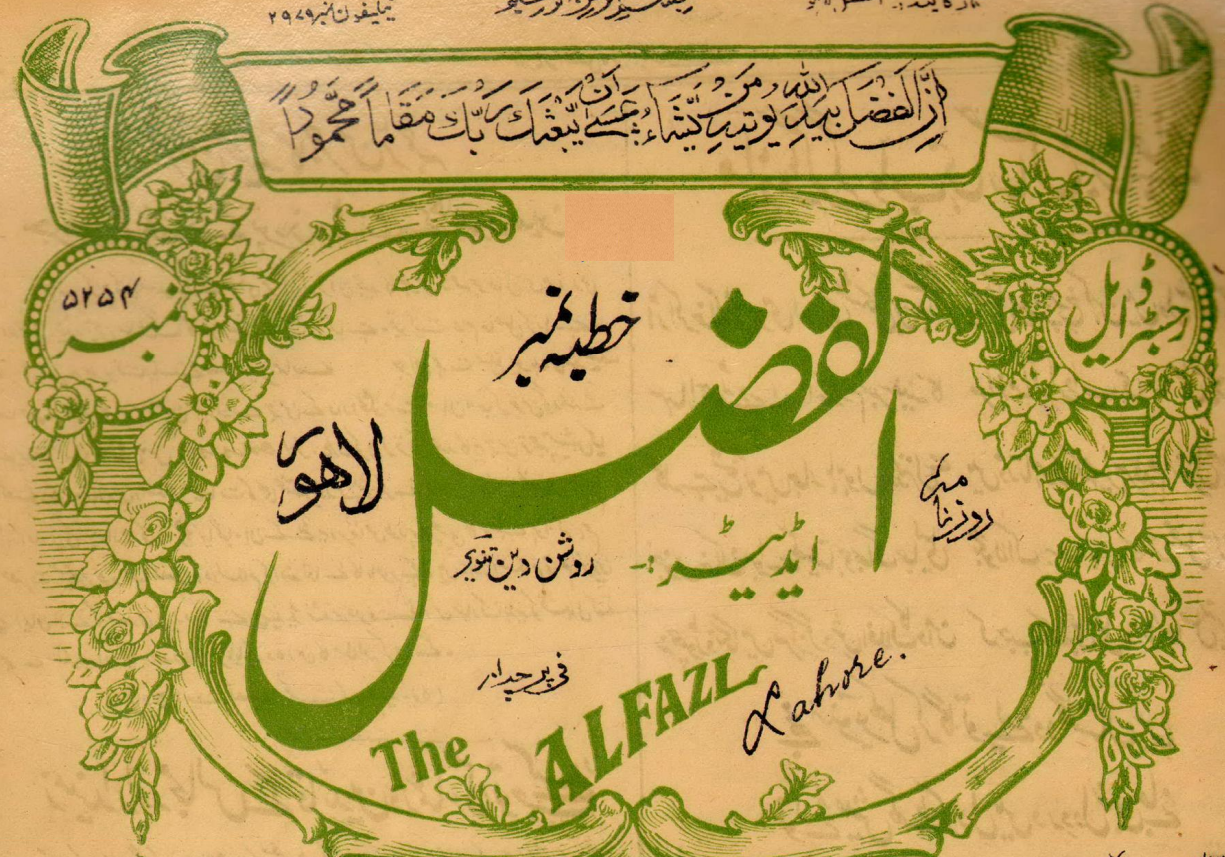 ٹیلیفون نمبر ۲۹۷۹
اِنَّ الْفَضْلَ بِیَدِ اللّٰہِ یُوتِیْہِ مَنْ یَّشَآءُ عَسٰٓے اَنْ یَّبْعَثَکَ رَبُّکَ مَقَامًا مَّحْمُوْدًا
رجسٹر ایل
نمبر ۵۲۵۴
الفضل
خطبہ نمبر
لاہور
روزنامہ
ایڈیٹر:۔
روشن دین تنویر
فی پرچہ ار
The ALFAZL
Lahore.